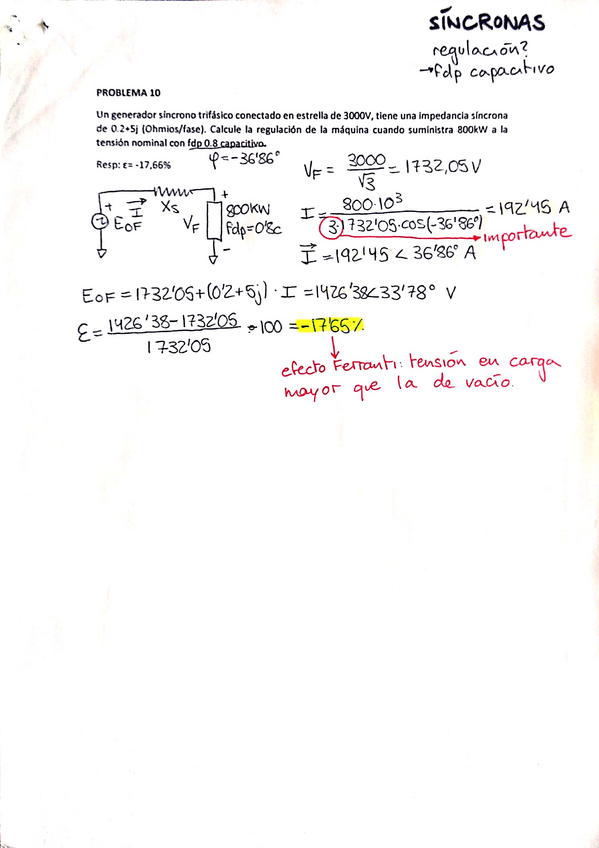 SÍNCRONAS
regulación?
→fdp capacitivo
PROBLEMA 10
Un generador síncrono trifásico conectado en estrella de 3000V, tiene una impedancia síncrona
de 0.2+5j (Ohmios/fase). Calcule la regulación de la máquina cuando suministra 800kW a la
tensión nominal con fdp 0.8 capacitivo.
Resp: ε= -17,66%
φ=-36'86°
VF = 3000/√3 = 1732,05 V
+ I Xs +
EOF VF 800KW
fdp=0'8c
-
I = 800·10³/3·1732'05·cos(-36'86°) = 192'45 A
importante
I = 192'45 < 36'86° A
EOF = 1732'05+(0'2+5j) · I = 1426'38<33'78° V
ε = 1426'38-1732'05/1732'05 · 100 = -17'65%
efecto Ferranti: tensión en carga
mayor que la de vacío.